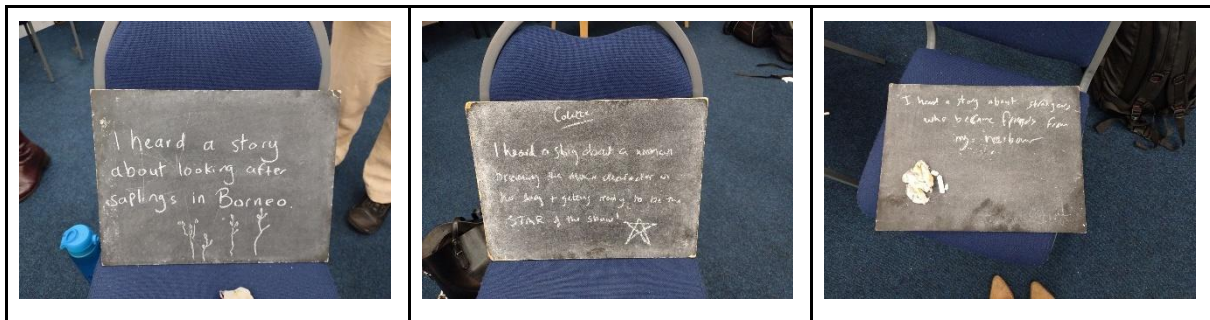 I heard a story
about looking after
saplings in Borneo.
Colette
I heard a story about a woman
becoming the main character in
her story & getting ready to be the
STAR of the show!
I heard a story about strangers
who became friends from
my